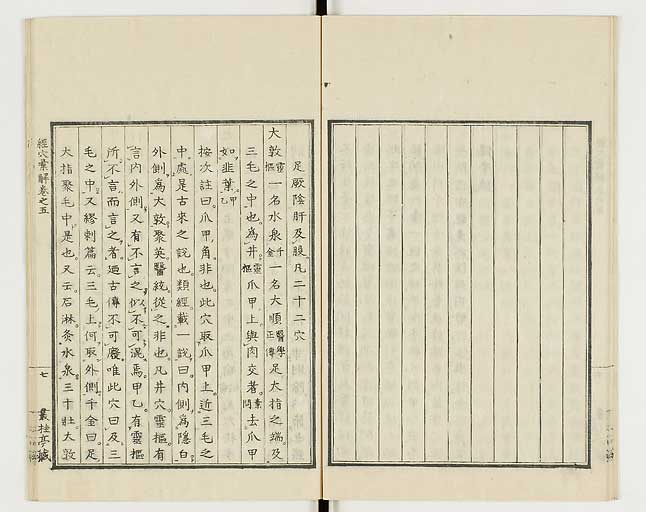 足厥陰肝及股凡二十二穴
大敦靈樞一名水泉千金一名大順醫學正傳足大指之端及
三毛之中也爲井靈樞爪甲上與肉交者素問去爪甲
如韭葉甲乙
按次註曰爪甲角非也此穴取爪甲上近三毛之
中處是古來之說也類經載一說曰內側爲隱白
外側爲大敦聚英醫統從之非也凡井穴靈樞有
言內外側又有不言之似不可泥焉甲乙有靈樞
所不言而言之者廼古傳不可廢唯此穴曰及三
毛之中又繆刺篇云三毛上何取外側千金曰足
大指聚毛中是也又云石淋灸水泉三十壯大敦
經穴彙解卷之五
七
叢桂亭藏